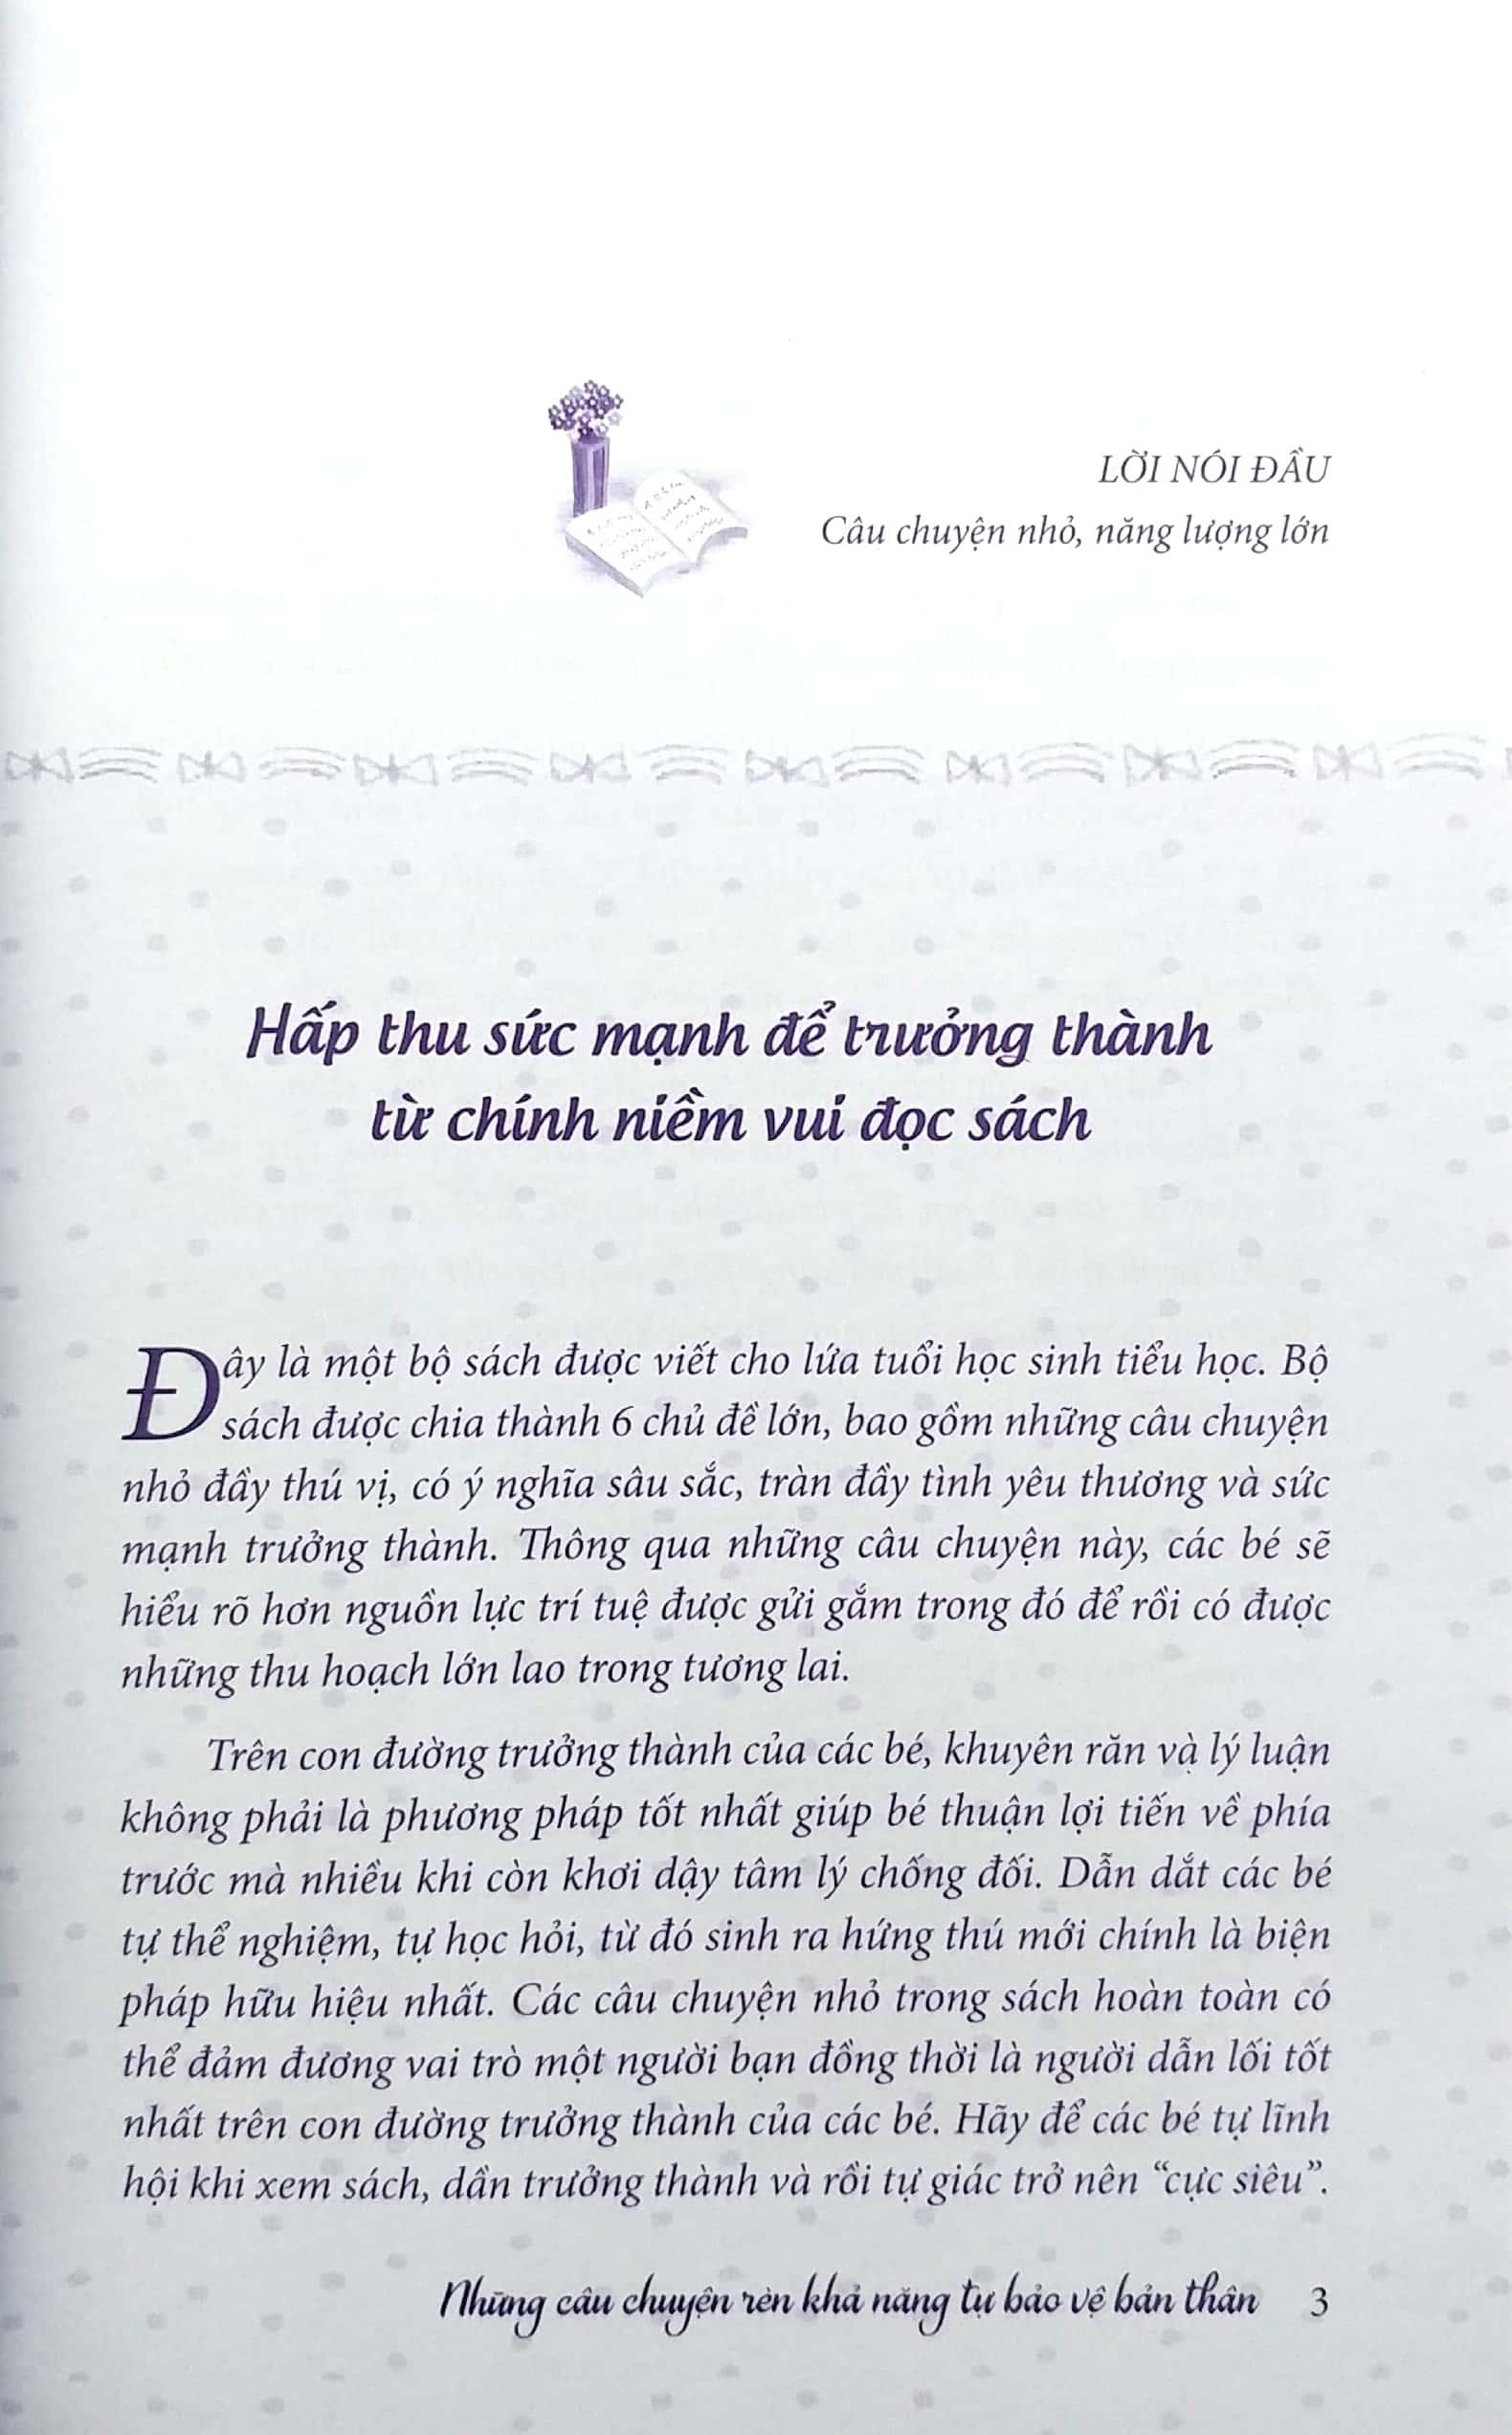 LỜI NÓI ĐẦU
Câu chuyện nhỏ, năng lượng lớn
Hấp thu sức mạnh để trưởng thành
từ chính niềm vui đọc sách
Đây là một bộ sách được viết cho lứa tuổi học sinh tiểu học. Bộ
sách được chia thành 6 chủ đề lớn, bao gồm những câu chuyện
nhỏ đầy thú vị, có ý nghĩa sâu sắc, tràn đầy tình yêu thương và sức
mạnh trưởng thành. Thông qua những câu chuyện này, các bé sẽ
hiểu rõ hơn nguồn lực trí tuệ được gửi gắm trong đó để rồi có được
những thu hoạch lớn lao trong tương lai.
Trên con đường trưởng thành của các bé, khuyên răn và lý luận
không phải là phương pháp tốt nhất giúp bé thuận lợi tiến về phía
trước mà nhiều khi còn khơi dậy tâm lý chống đối. Dẫn dắt các bé
tự thể nghiệm, tự học hỏi, từ đó sinh ra hứng thú mới chính là biện
pháp hữu hiệu nhất. Các câu chuyện nhỏ trong sách hoàn toàn có
thể đảm đương vai trò một người bạn đồng thời là người dẫn lối tốt
nhất trên con đường trưởng thành của các bé. Hãy để các bé tự lĩnh
hội khi xem sách, dần trưởng thành và rồi tự giác trở nên “cực siêu”.
Những câu chuyện rèn khả năng tự bảo vệ bản thân 3